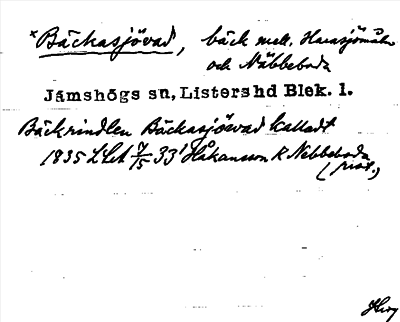 *Bäckasjövad, bäck mell. Harasjömåla
och Näbbeboda
Jämshögs sn, Listers hd Blek. l.
Bäckrindlen Bäckasjövad kalladt
1835 LSkt 7/5 33' Håkansson K Nebbeboda